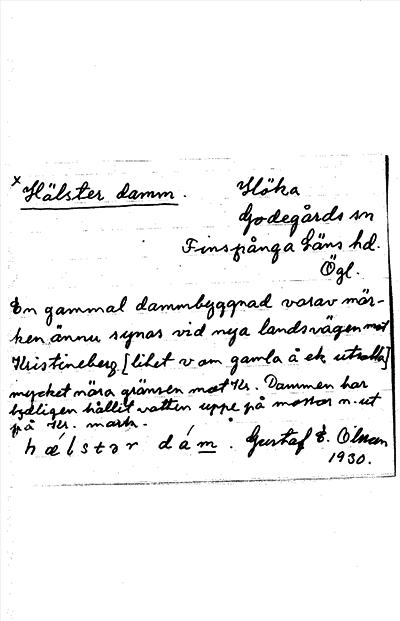 x Hälster damm.
Höka
Godegårds sn
Finspånga läns hd.
Ögl.
En gammal dammbyggnad varav mär-
ken ännu synas vid nya landsvägen mot
Kristineberg, [litet v om gamla å ek
mycket nära gränsen mot Kr. Dammen har
tydligen hållit vatten uppe på mossar n. ut
på Kr. mark.
hälstər dám. Gustaf E. Olsson
1930.